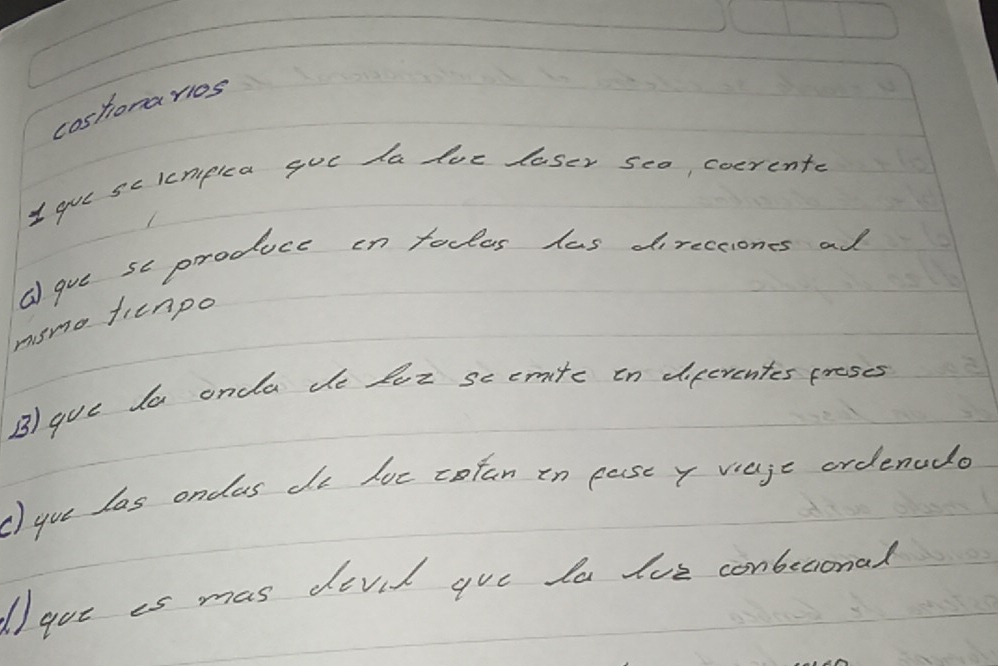 costionarios
1 que se icnifica que la luz laser sea, coerente
a) que se produce en todas las direcciones al
mismo tienpo
B) que la onda de luz se emite en diferentes freses
c) que las ondas de luz estan en fase y viaje ordenado
d) que es mas devil que la luz conbecional